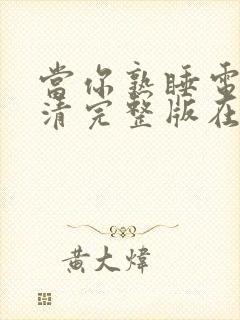 當你熟睡電
清完整版在
黃大煒